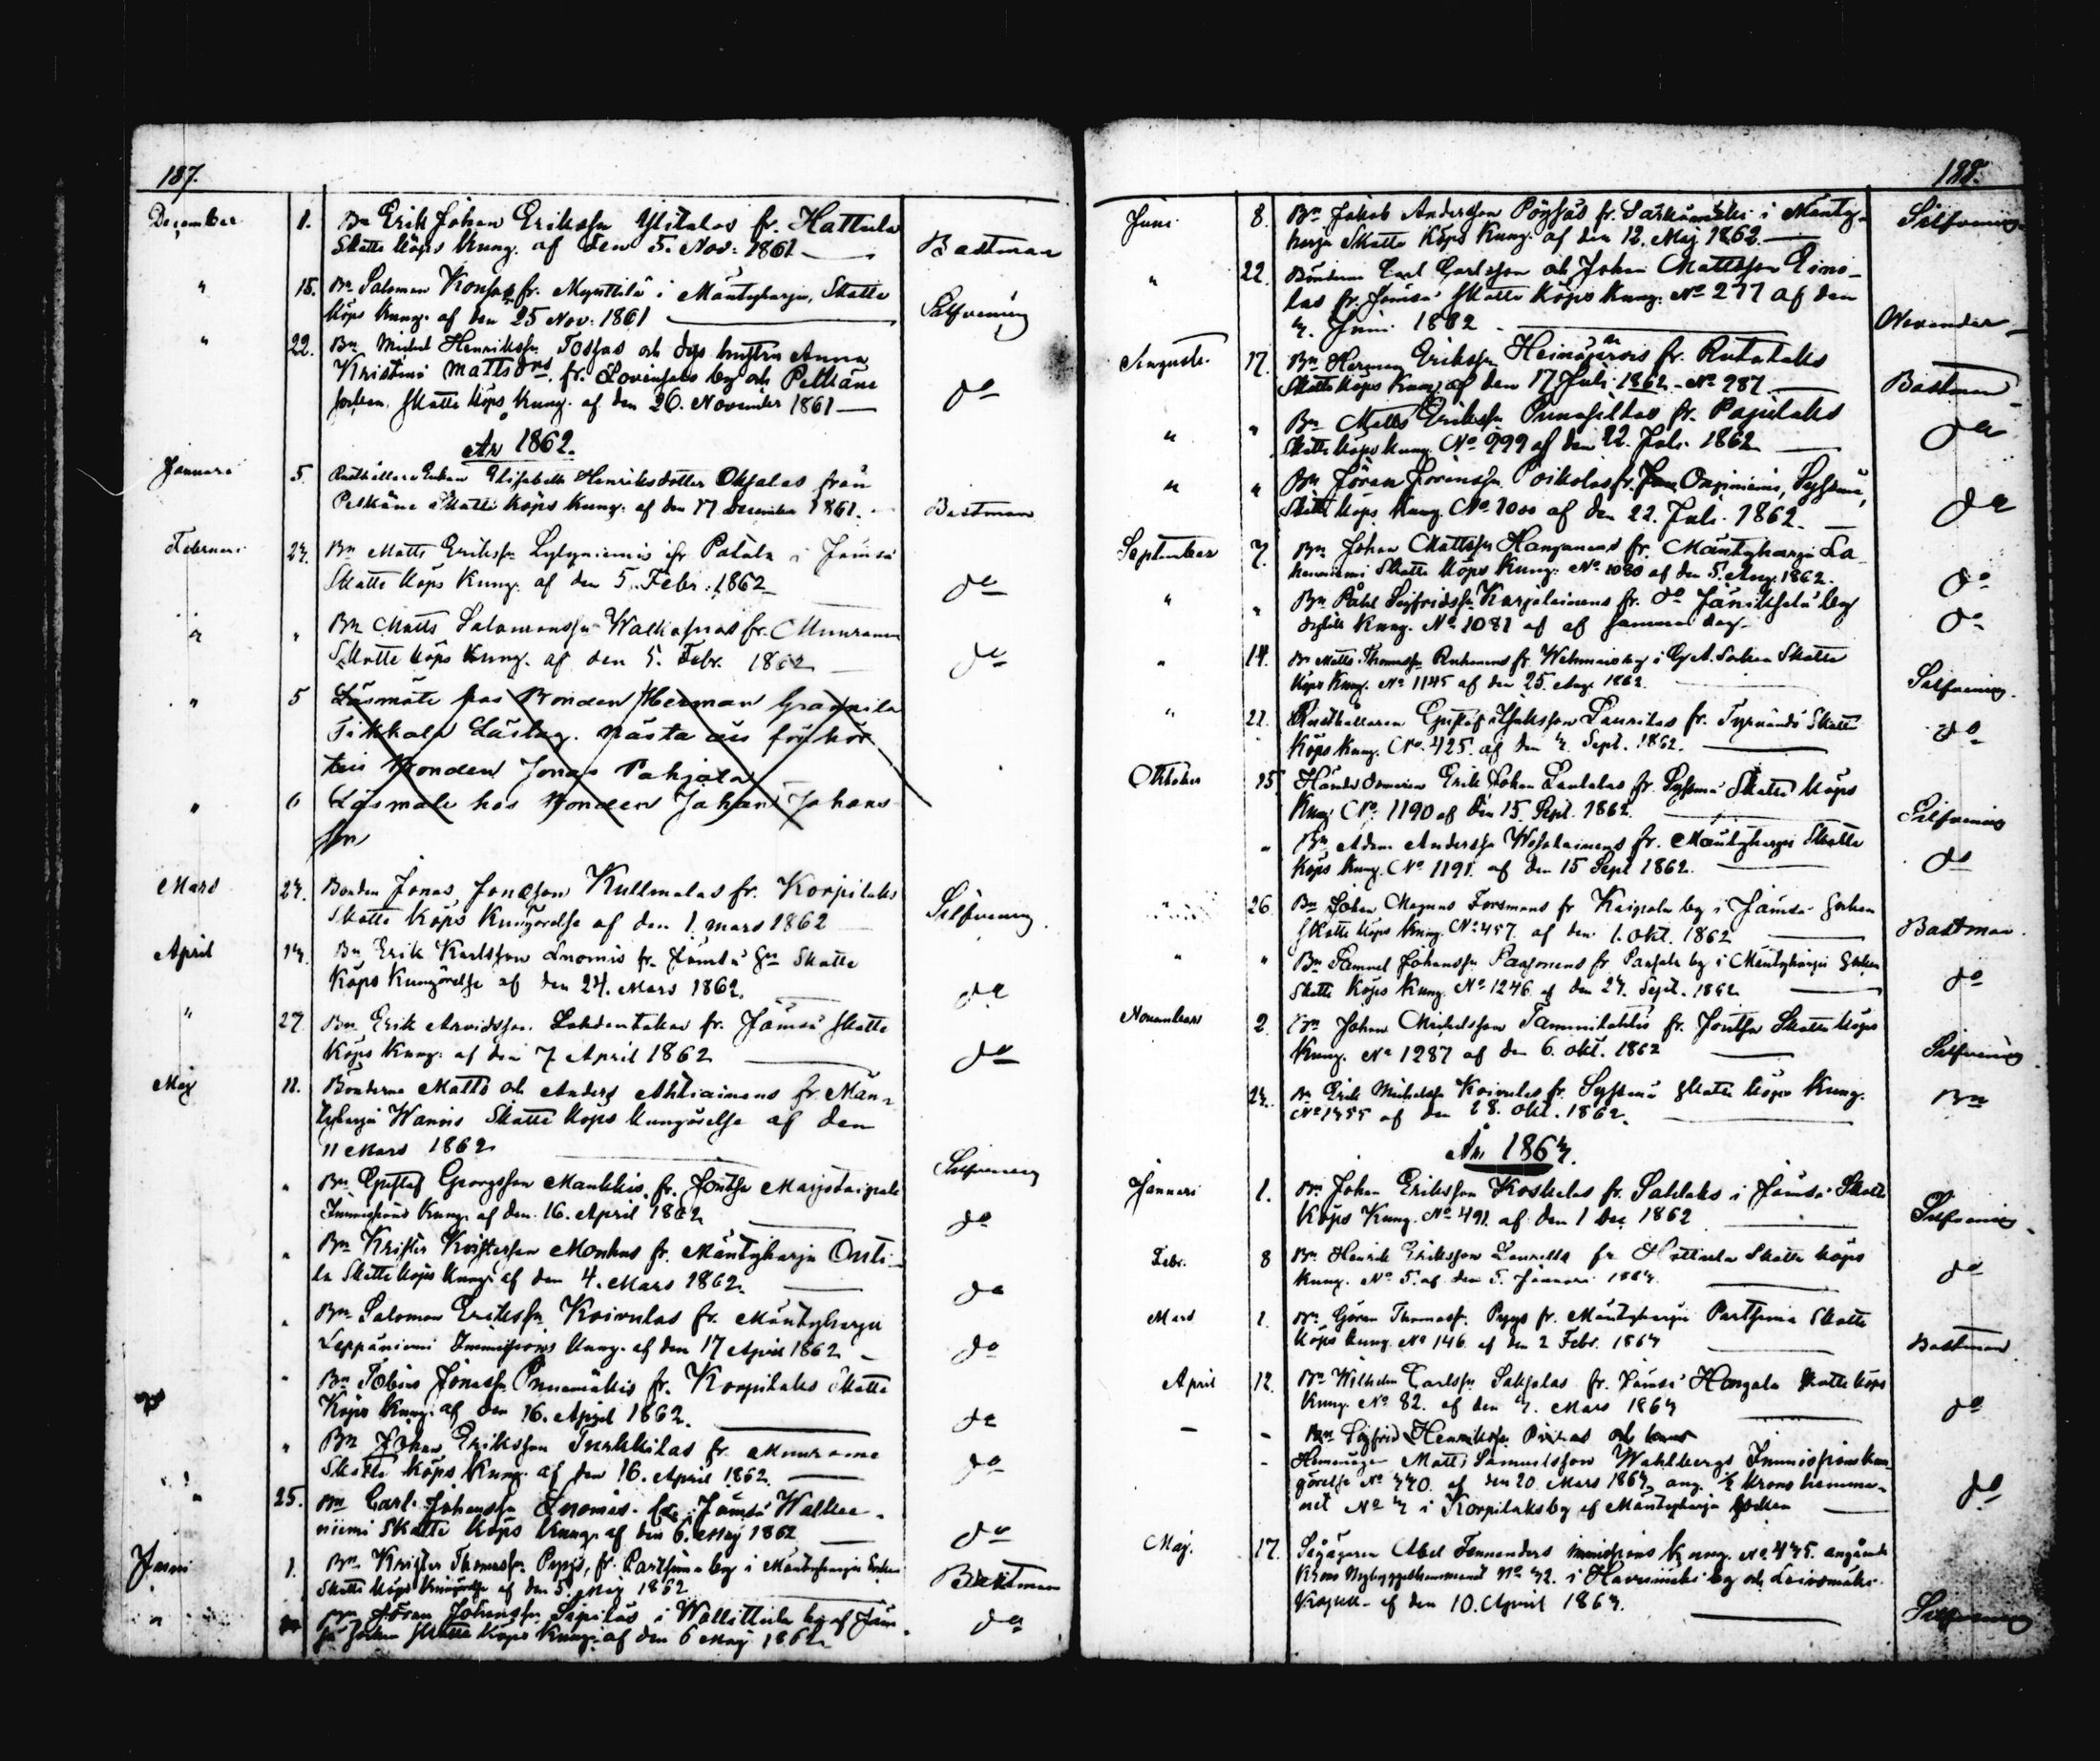 187.
December 1. Bn Erik Johan Eriksson Ylitalos fr. Hattula
Skatte köps kung. af den 5. Nov: 1861 — Bastman
" 15. Bn Salomon Konsas fr. Mynttilä i Mäntyharju, Skatte
köps kung. af den 25 Nov: 1861 — Silfvening
" 22. Bn Michel Henriksson och dess hustru Anna
Kristina Mattsdrs. fr. by och Pelkäne
socken. Skatte köps kung. af den 26. November 1861 — do
År 1862.
Januari 5. Rusthållare Enkan Elisabeth Henriksdotter Ohsalas från
Pelkäne Skatte köps kung. af den 17 December 1861. Bastman
Februari 23. Bn Matts Eriksson Lylyniemis fr Patala i Jämsä
Skatte köps kung. af den 5. Febr. 1862 do
" " Bn Matts Salomonsson fr. Muurame
Skatte köps kung. af den 5. Febr. 1862 — do
" 5 Läsmöte hos Bonden Herman Grannila
Tikkala Läslag. nästa års förhör
hos Bonden Jonas Pahjola
" 6 Läsmöte hos Bonden Johan Johans
son
Mars 23. Bonden Jonas Jonasson Kullmalas fr. Korpilaks
Skatte köps Kungörelse af den 1. mars 1862 Silfvening
April 13. Bn Erik Karlsson Luomis fr. Jämsä Sn Skatte
köps kungörelse af den 24. Mars 1862. do
" 27. Bn Erik Arvidsson Lahdentakas fr. Jämsä Skatte
köps kung. af den 7 April 1862 — do
Maj 11. Bönderne Matts och Anders Ahtiainens fr. Män-
tyharju Wanois Skatte köps kungörelse af den
11 Mars 1862 — Silfvening
" Bn Gustaf Georgsson Maukkis fr. Joutsa Marjotaipale
Immissions kung. af den 16. April 1862 — do
" Bn Krister Kristersson Monkus fr. Mäntyharju Outi-
la Skatte köps kung. af den 4. Mars 1862. — do
" Bn Salomon Eriksson Koivulas fr. Mäntyharju
Leppäniemi Immissions kung. af den 17 April 1862 — do
" Bn Tobias Jonasson fr. Korpilaks Skatte
köps kung. af den 16. April 1862. do
" Bn Johan Eriksson Turkkilas fr. Muurame
Skatte köps kung. af den 16. April 1862. — do
" 25. Bn Carl Johansson Luomas fr. Jämsä Walkea-
niemi Skatte köps kung. af den 6. Maj 1862 — do
Juni 1. Bn Krister Thomasson Pyyys, fr. Partsima by i Mäntyharju Socken
Skatte köps kungörelse af den 5. Maj 1862 — Bastman
" Bn Göran Johansson Sipilas i Wallittula by af Jäm-
sä Socken Skatte köps kung. af den 6 Maj 1862 do
188.
Juni 8. Bn Jakob Andersson Pöyhiäs fr. Särkämäki i Mänty-
harju Skatte köps kung. af den 12. Maj 1862. — Silfvening
" 22. Bönderne Carl Carlsson och Johan Mattsson Eino-
las fr. Jämsä Skatte köps kung. No 277 af den
3. Juni 1862 — Nevander
Augusti 17. Bn Herman Eriksson Heinäjärvis fr. Rutalaks
Skatte köps kung. af den 17 Juli 1862 - No 987 — Bastman
" " Bn Matts Eriksson fr. Papilaks
Skatte köps kung. No 999 af den 22. Juli 1862 — do
" " Bn Jöran Jöransson Poikolas fr. Onginiemi, Sysmä,
Skatte köps kung. No 1000 af den 22. Juli 1862. — do
September 7. Bn Johan Mattsson Manganens fr. Mäntyharju La-
Skatte köps kung. No 1080 af den 5. Aug. 1862. do
" " Bn Påhl Sigfridsson Karjalainens fr. do Jänikhelä by
dylik kung. No 1081 af samma dag — do
" 14. Bn Matts Thomasson Ruhanens fr. Wehmais by i G.A. Socken Skatte
köps kung. No 1145 af den 25. Aug. 1862. Silfvening
" 21. Rusthållaren Gustaf Isaksson Lauritas fr. Tyrvändö Skatte
köps kung. No. 425. af den 3. Sept. 1862. — do
Oktober 15. Erik Johan Laulalas fr. Sysmä Skatte köps
kung No. 1190 af den 15. Sept. 1862. — Silfvening
" Bn Adam Andersson fr. Mäntyharju Skatte
köps kung. No 1191. af den 15 Sept 1862. — do
" 26. Bn Johan Magnus Forsmans fr Kaipola by i Jämsä Socken
Skatte köps kung. No 457. af den 1. Okt. 1862 — Bastman
" " Bn Samuel Johansson Parsonens fr. Parsola by i Mäntyharju Socken
Skatte köps kung. No 1246 af den 23. Sept. 1862 — do
November 2. Bn Johan Michelsson Tammilahtis fr. Joutsa Skatte köps
kung. No 1287 af den 6. Okt. 1862 — Silfvening
23. Bn Erik Michelsson Koivulas fr. Sysmä Skatte köps kung.
No 1355 af den 28. Okt. 1862. — Bn
År 1863.
Januari 1. Bn Johan Eriksson Koskelas fr. Sahlaks i Jämsä Skatte
köps kung. No 491. af den 1 Dec 1862 — Silfvening
Febr. 8 Bn Henrik Eriksson fr Hattula Skatte köps
kung. No 5. af den 5. Januari 1863. — do
Mars 1. Bn Göran Thomasson Pyyys fr. Mäntyharju Partsima Skatte
köps kung. No 146 af den 2 Febr. 1863 — Bastman
April 12. Bn Wilhelm Carlsson Saksalas fr. Jämsä Hangala Skatte köps
kung. No 82. af den 3. Mars 1863 — do
— - Bn Sigfrid Henriksson och
- Hemmägar Matts Samuelsson Wahlbergs Immissionskun-
görelse No 330. af den 20. Mars 1863, ang. 1/2 krono hemma-
net No 3 i Korpilaks by af Mäntyharju socken — do
Maj. 17. Sågägaren Abel Fennanders Immissions kung. No 435. angående
Krono Nybyggeshemmanet No 32. i by och Leivomäki
Kapell. af den 10. April 1863. — Silfvening